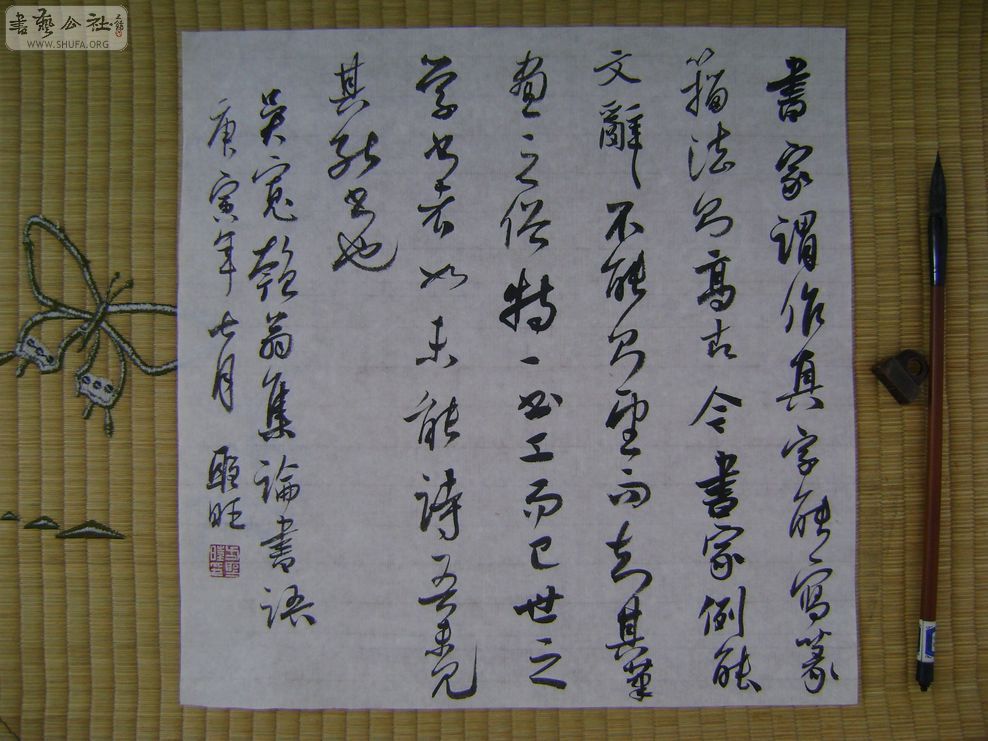 書艺公社
WWW.SHUFA.ORG
書家謂作真字能寫篆
籀法则高古今書家例能
文辭不能则望而知其筆
畫之俗特一书工而已世之
学书者如未能詩吾未見
其能书也
吴寬匏翁集論書語
庚寅年七月